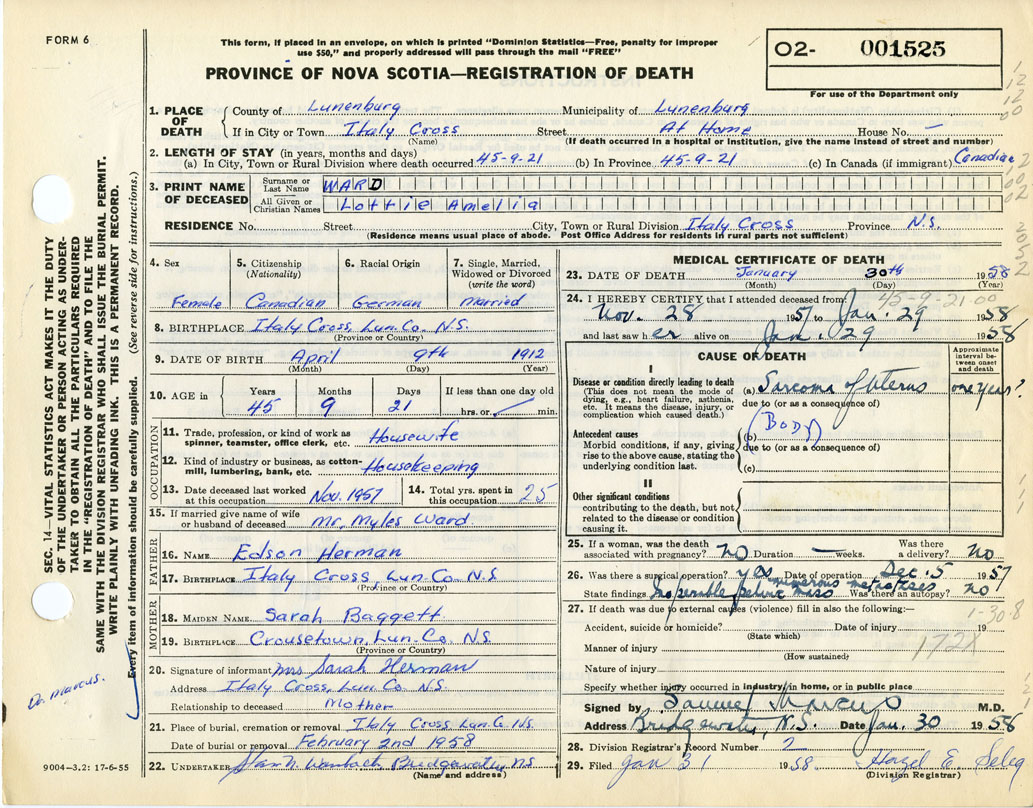 FORM 6
This form, if placed in an envelope, on which is printed "Dominion Statistics—Free, penalty for improper
use $50," and properly addressed will pass through the mail "FREE"
PROVINCE OF NOVA SCOTIA—REGISTRATION OF DEATH
O2- 001525
For use of the Department only
1. PLACE OF DEATH { County of Lunenburg Municipality of Lunenburg
If in City or Town Italy Cross Street At Home House No. —
(Name) (If death occurred in a hospital or institution, give the name instead of street and number)
2. LENGTH OF STAY (in years, months and days)
(a) In City, Town or Rural Division where death occurred 45-9-21 (b) In Province 45-9-21 (c) In Canada (if immigrant) Canadian
3. PRINT NAME OF DECEASED { Surname or Last Name WARD
All Given or Christian Names Lottie Amelia
RESIDENCE No. Street City, Town or Rural Division Italy Cross Province N.S.
(Residence means usual place of abode. Post Office Address for residents in rural parts not sufficient)
SEC. 14—VITAL STATISTICS ACT MAKES IT THE DUTY
OF THE UNDERTAKER OR PERSON ACTING AS UNDER-
TAKER TO OBTAIN ALL THE PARTICULARS REQUIRED
IN THE "REGISTRATION OF DEATH" AND TO FILE THE
SAME WITH THE DIVISION REGISTRAR WHO SHALL ISSUE THE BURIAL PERMIT.
WRITE PLAINLY WITH UNFADING INK. THIS IS A PERMANENT RECORD.
Every item of information should be carefully supplied. (See reverse side for instructions.)
Dr. Marcus.
4. Sex Female
5. Citizenship (Nationality) Canadian
6. Racial Origin German
7. Single, Married, Widowed or Divorced (write the word) Married
8. BIRTHPLACE Italy Cross, Lun. Co. N.S.
(Province or Country)
9. DATE OF BIRTH April 9th 1912
(Month) (Day) (Year)
10. AGE in { Years 45 Months 9 Days 21 If less than one day old hrs. or min.
OCCUPATION
11. Trade, profession, or kind of work as spinner, teamster, office clerk, etc. Housewife
12. Kind of industry or business, as cotton-mill, lumbering, bank, etc. Housekeeping
13. Date deceased last worked at this occupation Nov. 1957
14. Total yrs. spent in this occupation 25
15. If married give name of wife or husband of deceased Mr. Myles Ward
FATHER
16. NAME Edson Herman
17. BIRTHPLACE Italy Cross, Lun. Co. N.S
(Province or Country)
MOTHER
18. MAIDEN NAME Sarah Baggett
19. BIRTHPLACE Crousetown, Lun. Co. N.S.
(Province or Country)
20. Signature of informant Mrs Sarah Herman
Address Italy Cross, Lun Co. N.S
Relationship to deceased Mother
21. Place of burial, cremation or removal Italy Cross, Lun. Co. N.S.
Date of burial or removal February 2nd 1958
22. UNDERTAKER Bridgewater, N.S
(Name and address)
9004—3.2: 17-6-55
MEDICAL CERTIFICATE OF DEATH
23. DATE OF DEATH January 30th 1958
(Month) (Day) (Year)
45-9-21 00
24. I HEREBY CERTIFY that I attended deceased from:
Nov. 28 1957 to Jan. 29 1958
and last saw her alive on Jan. 29 1958
CAUSE OF DEATH
Approximate interval between onset and death
I
Disease or condition directly leading to death
(This does not mean the mode of dying, e.g., heart failure, asthenia, etc. It means the disease, injury, or complication which caused death.)
(a) Sarcoma of Uterus one year?
due to (or as a consequence of)
Antecedent causes
Morbid conditions, if any, giving rise to the above cause, stating the underlying condition last.
(b) (Body)
due to (or as a consequence of)
(c)
II
Other significant conditions
contributing to the death, but not related to the disease or condition causing it.
25. If a woman, was the death associated with pregnancy? no Duration — weeks. Was there a delivery? no
26. Was there a surgical operation? yes Date of operation Dec. 5 1957
State findings Inoperable pelvic mass numerous Was there an autopsy? no
27. If death was due to external causes (violence) fill in also the following:—
1-30-8
Accident, suicide or homicide? Date of injury 19
(State which)
172X
Manner of injury
(How sustained)
Nature of injury
Specify whether injury occurred in industry, in home, or in public place
Signed by Samuel Marcus M.D.
Address Bridgewater, N.S. Date Jan. 30 1958
28. Division Registrar's Record Number 2
29. Filed Jan 31 1958. Hazel E. Seleg
(Division Registrar)